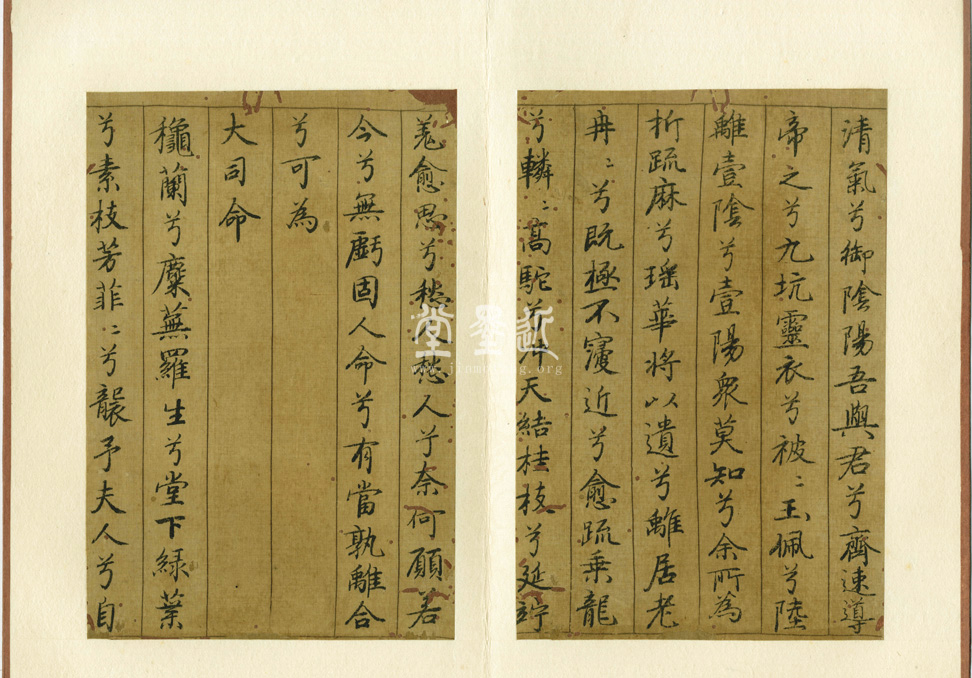 清氣兮御陰陽吾與君兮齊速導
帝之兮九坑靈衣兮被〻玉佩兮陸
離壹陰兮壹陽衆莫知兮余所為
折疏麻兮瑶華將以遺兮離居老
冉〻兮既極不寖近兮愈疏乗龍
兮轔〻高駝兮沖天結桂枝兮延竚
羗愈思兮愁人愁人兮奈何願若
今兮無虧固人命兮有當孰離合
兮可為
大司命
穐蘭兮麋蕪羅生兮堂下綠葉
兮素枝芳菲〻兮襲予夫人兮自
近墨堂
www.jinmotang.org